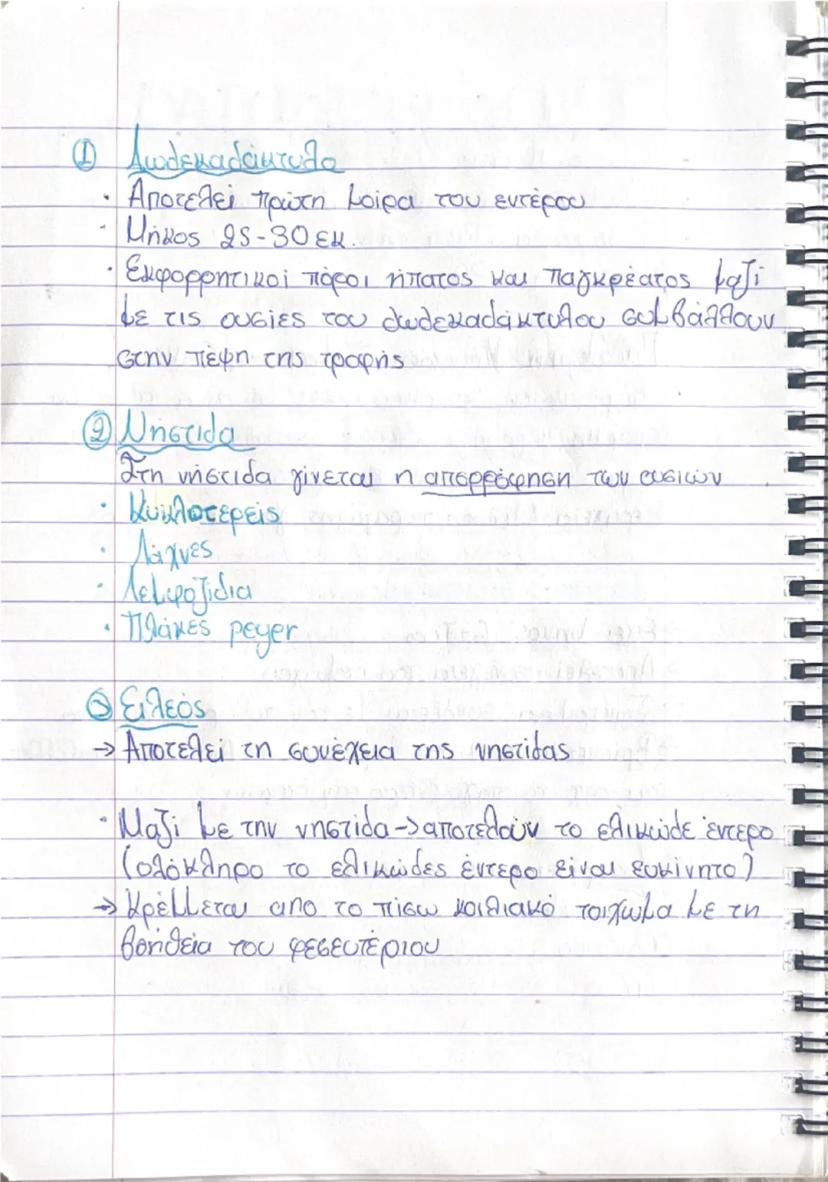 ① Δωδεκαδάκτυλο
· Αποτελεί πρώτη μοίρα του εντέρου
· Μήκος 25-30 εκ.
· Εκφορρητικοί πόροι ήπατος και παγκρέατος μαζί
με τις ουσίες του δωδεκαδάκτυλου συμβάλλουν
στην πέψη της τροφής
② Νήστιδα
Στη νήστιδα γίνεται η απορρόφηση των ουσιών
· Κυκλοτερείς
· Λάχνες
· Λεμφοζίδια
· Πλάκες peyer
③ Ειλεός
→ Αποτελεί τη συνέχεια της νηστίδας
· Μαζί με την νηστίδα → αποτελούν το ελικώδε έντερο
(ολόκληρο το ελικώδες έντερο είναι ευκίνητο)
→ Κρέμμεται απο το πίσω κοιλιακό τοιχωμα με τη
βοήθεια του φεσευτέριου